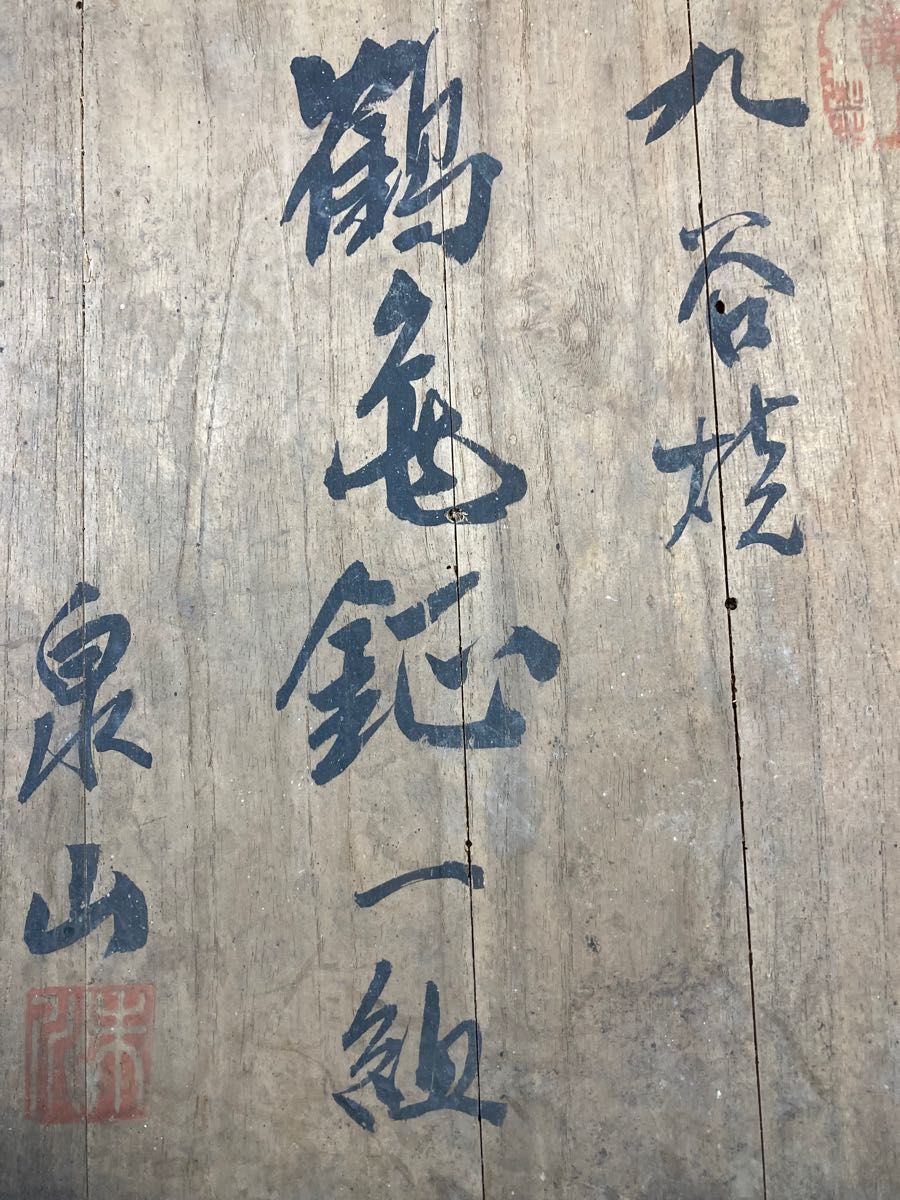 九谷焼
鶴亀鉦一組
泉山